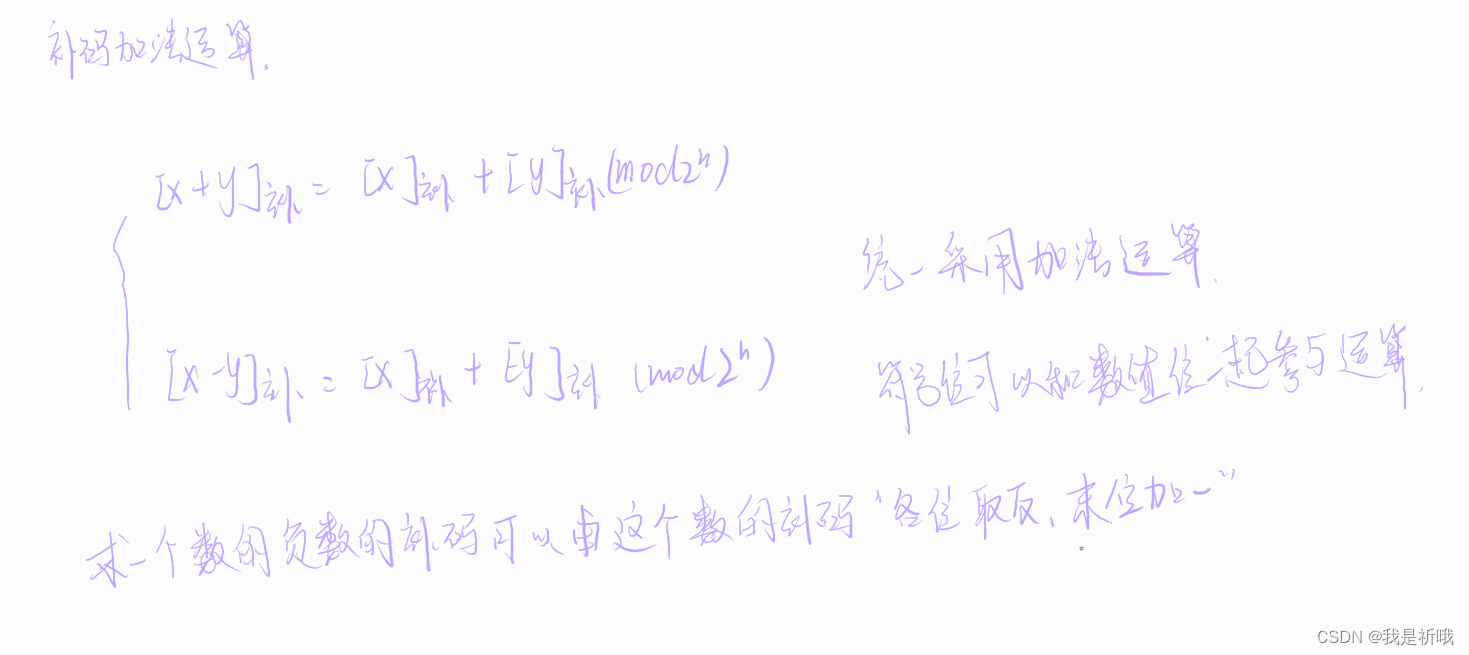 补码加法运算.
[x+y]补 = [x]补 + [y]补 (mod2ⁿ)
统一采用加法运算.
[x-y]补 = [x]补 + [y]补 (mod2ⁿ)
符号位可以和数值位一起参与运算.
求一个数的负数的补码可以由这个数的补码“各位取反、末位加一”
CSDN @我是祈哦